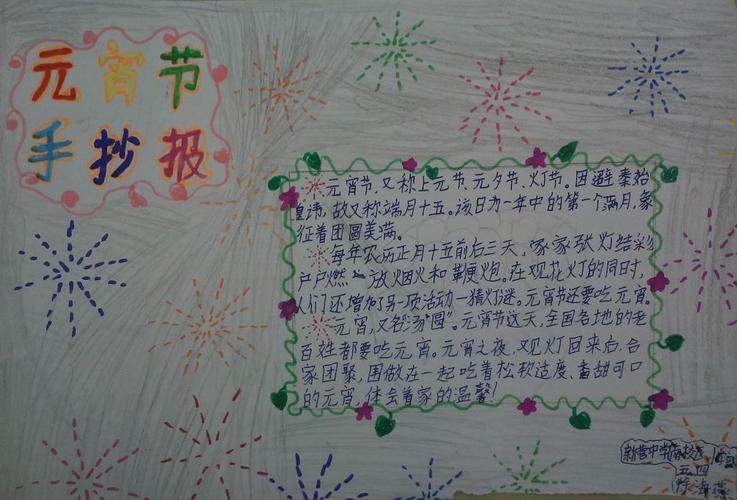 元宵节
手抄报
元宵节,又称上元节、元夕节、灯节。因避秦始
皇讳,故又称端月十五。该日为一年中的第一个满月,象
征着团圆美满。
每年农历正月十五前后三天,家家张灯结彩
户户燃放烟火和鞭炮。在观花灯的同时,
人们还增加另一项活动一猜灯谜。元宵节还要吃元宵。
元宵,又名"汤圆"。元宵节这天,全国各地的老
百姓都要吃元宵。元宵之夜,观灯回来后,合
家团聚,围做在一起吃着松软适度、香甜可口
的元宵,体会着家的温馨!
新营中学
五四
徐海燕